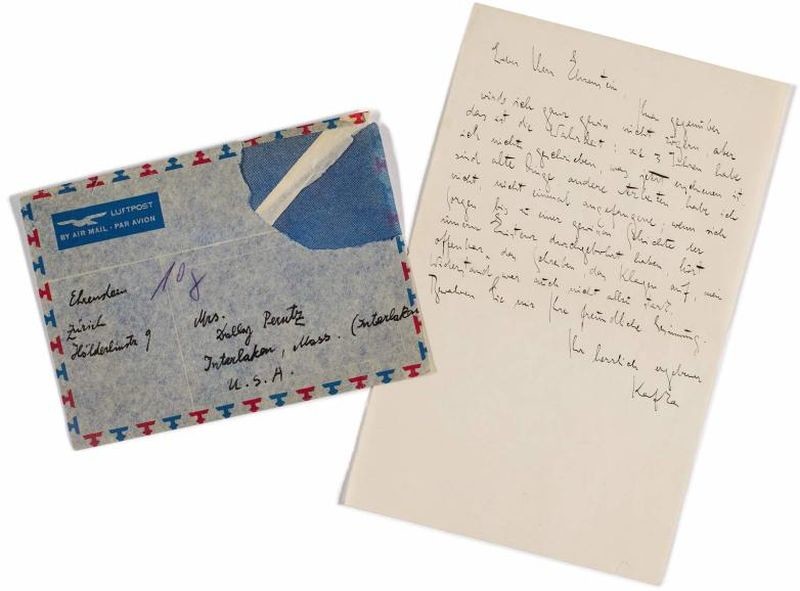 LUFTPOST
BY AIR MAIL · PAR AVION
10 g
Ehrenstein
Zürich
Hölderlinstr 9
Mrs.
Perutz
Interlaken, Mass. (Interlaken
U.S.A.
Lieber Herr Ehrenstein, Ihnen gegenüber
würde ich ganz gewiss nicht zögern, aber
das ist die Wahrheit: seit 3 Jahren habe
ich nichts geschrieben, was jetzt erschienen ist
sind alte Dinge, andere Arbeiten habe ich
nicht, nicht einmal angefangene; wenn sich
Sorgen bis zu einer gewissen Schichte der
innern Existenz durchgebohrt haben, hört
offenbar das Schreiben, das Klagen auf, mein
Widerstand war auch nicht allzu stark.
Bewahren Sie mir Ihre freundliche Gesinnung.
Ihr herzlich ergebener
Kafka